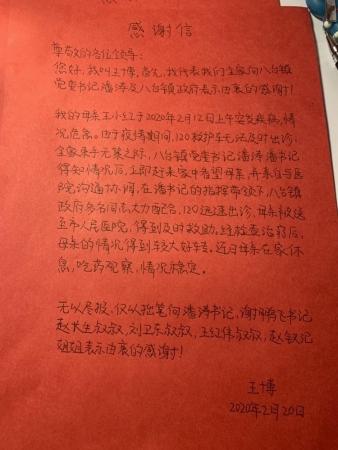 感谢信
尊敬的各位领导：
您好，我叫王博，首先，我代表我们全家向八台镇
党委书记潘涛及八台镇政府表示由衷的感谢！
我的母亲王小红于2020年2月12日上午突发疾病，情
况危急。由于疫情期间，120救护车无法及时出诊，
全家束手无策之际，八台镇党委书记潘涛书记
得知情况后，立即赶来家中看望母亲，并亲自与医
院沟通协调，在潘书记的指挥带领下，八台镇
政府多名同志大力配合，120迅速出诊，母亲被送
至市人民医院，得到及时救助，经检查治疗后，
母亲的情况得到较大好转。近日母亲在家休
息，吃药观察，情况稳定。
无以为报，仅以拙笔向潘涛书记，谢鹏飞书记
赵长生叔叔，刘卫东叔叔，王红伟叔叔，赵
姐姐表示由衷的感谢！
王博
2020年2月20日